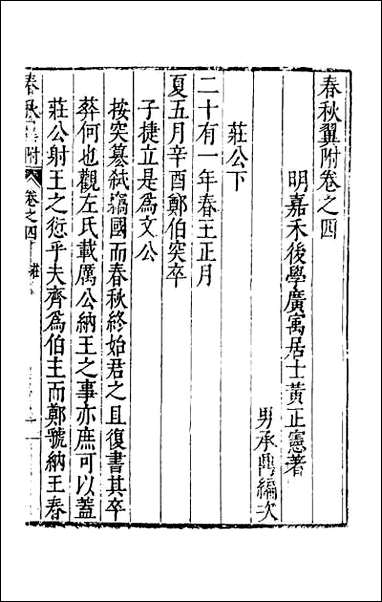 春秋翼附卷之四
明嘉禾後學廣寓居士黃正憲著
男承鼎編次
莊公下
二十有一年春王正月
夏五月辛酉鄭伯突卒
子捷立是為文公
按突篡弑竊國而春秋終始君之且復書其卒
葬何也觀左氏載厲公納王之事亦庶可以蓋
莊公射王之愆乎夫齊為伯主而鄭虢納王春
春秋翼附 卷之四